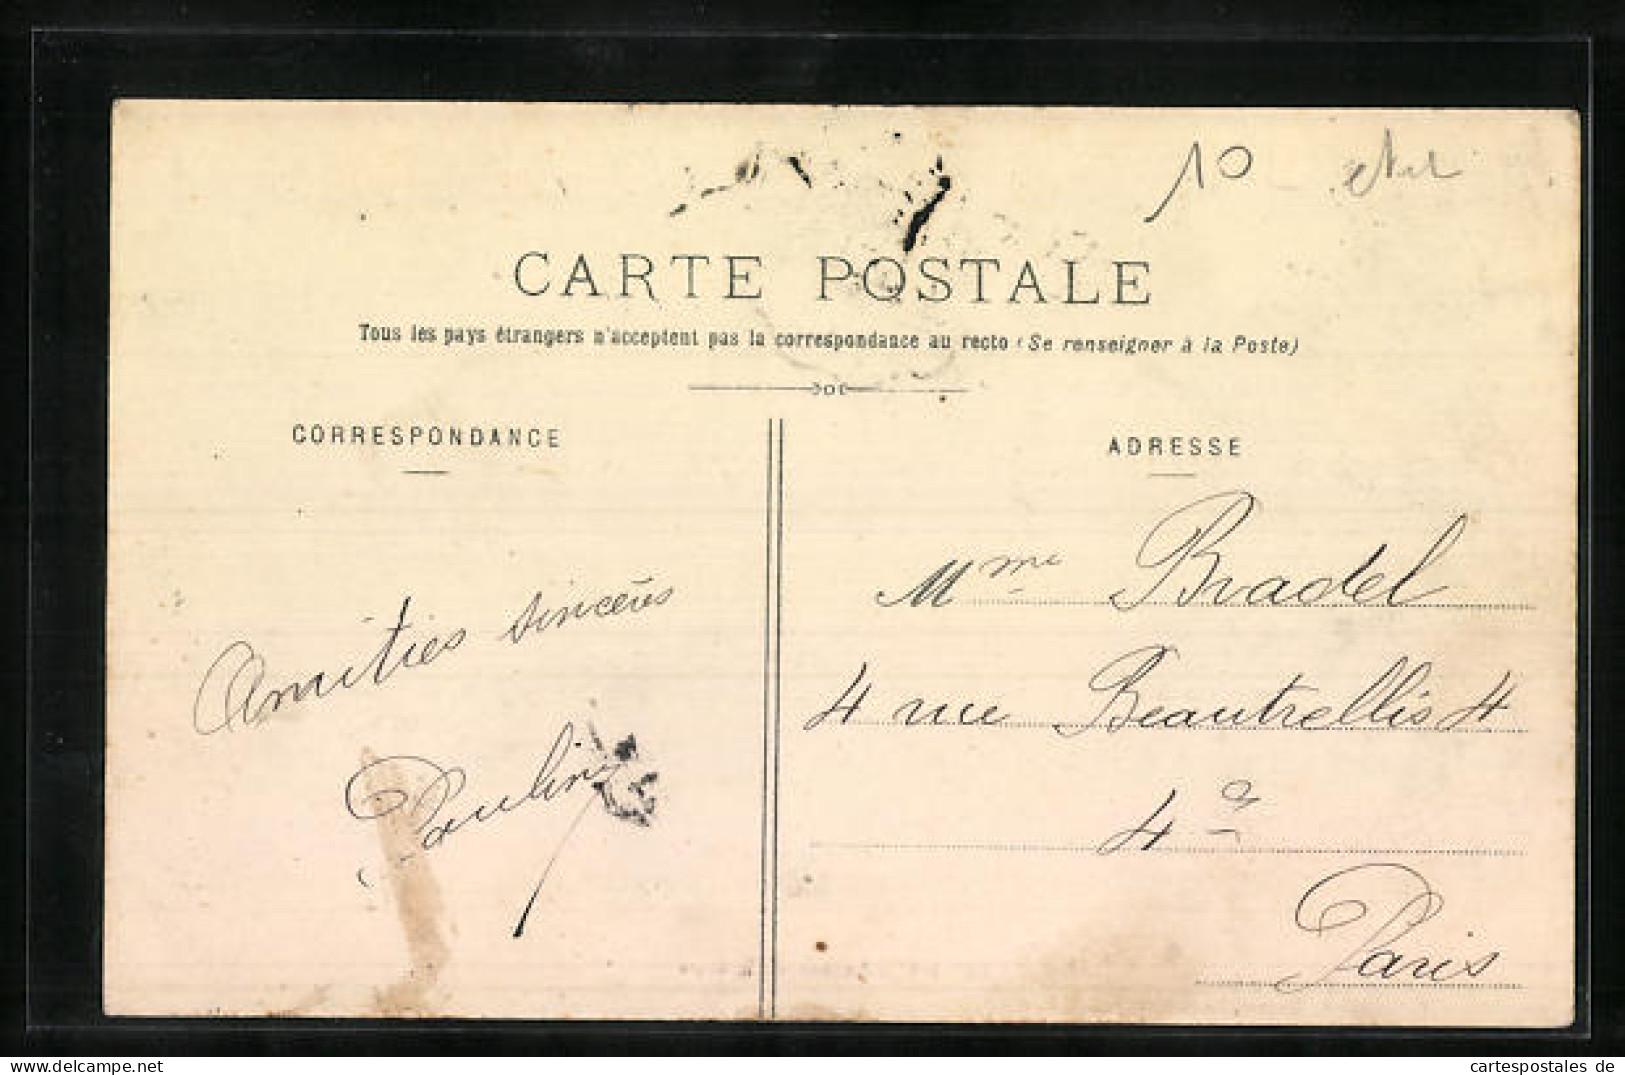 10
CARTE POSTALE
Tous les pays étrangers n'acceptent pas la correspondance au recto (Se renseigner à la Poste)
CORRESPONDANCE
Amitiés sincères
ADRESSE
Mme Bradel
4 rue Beautrellis 4
4e
Paris
cartespostales de